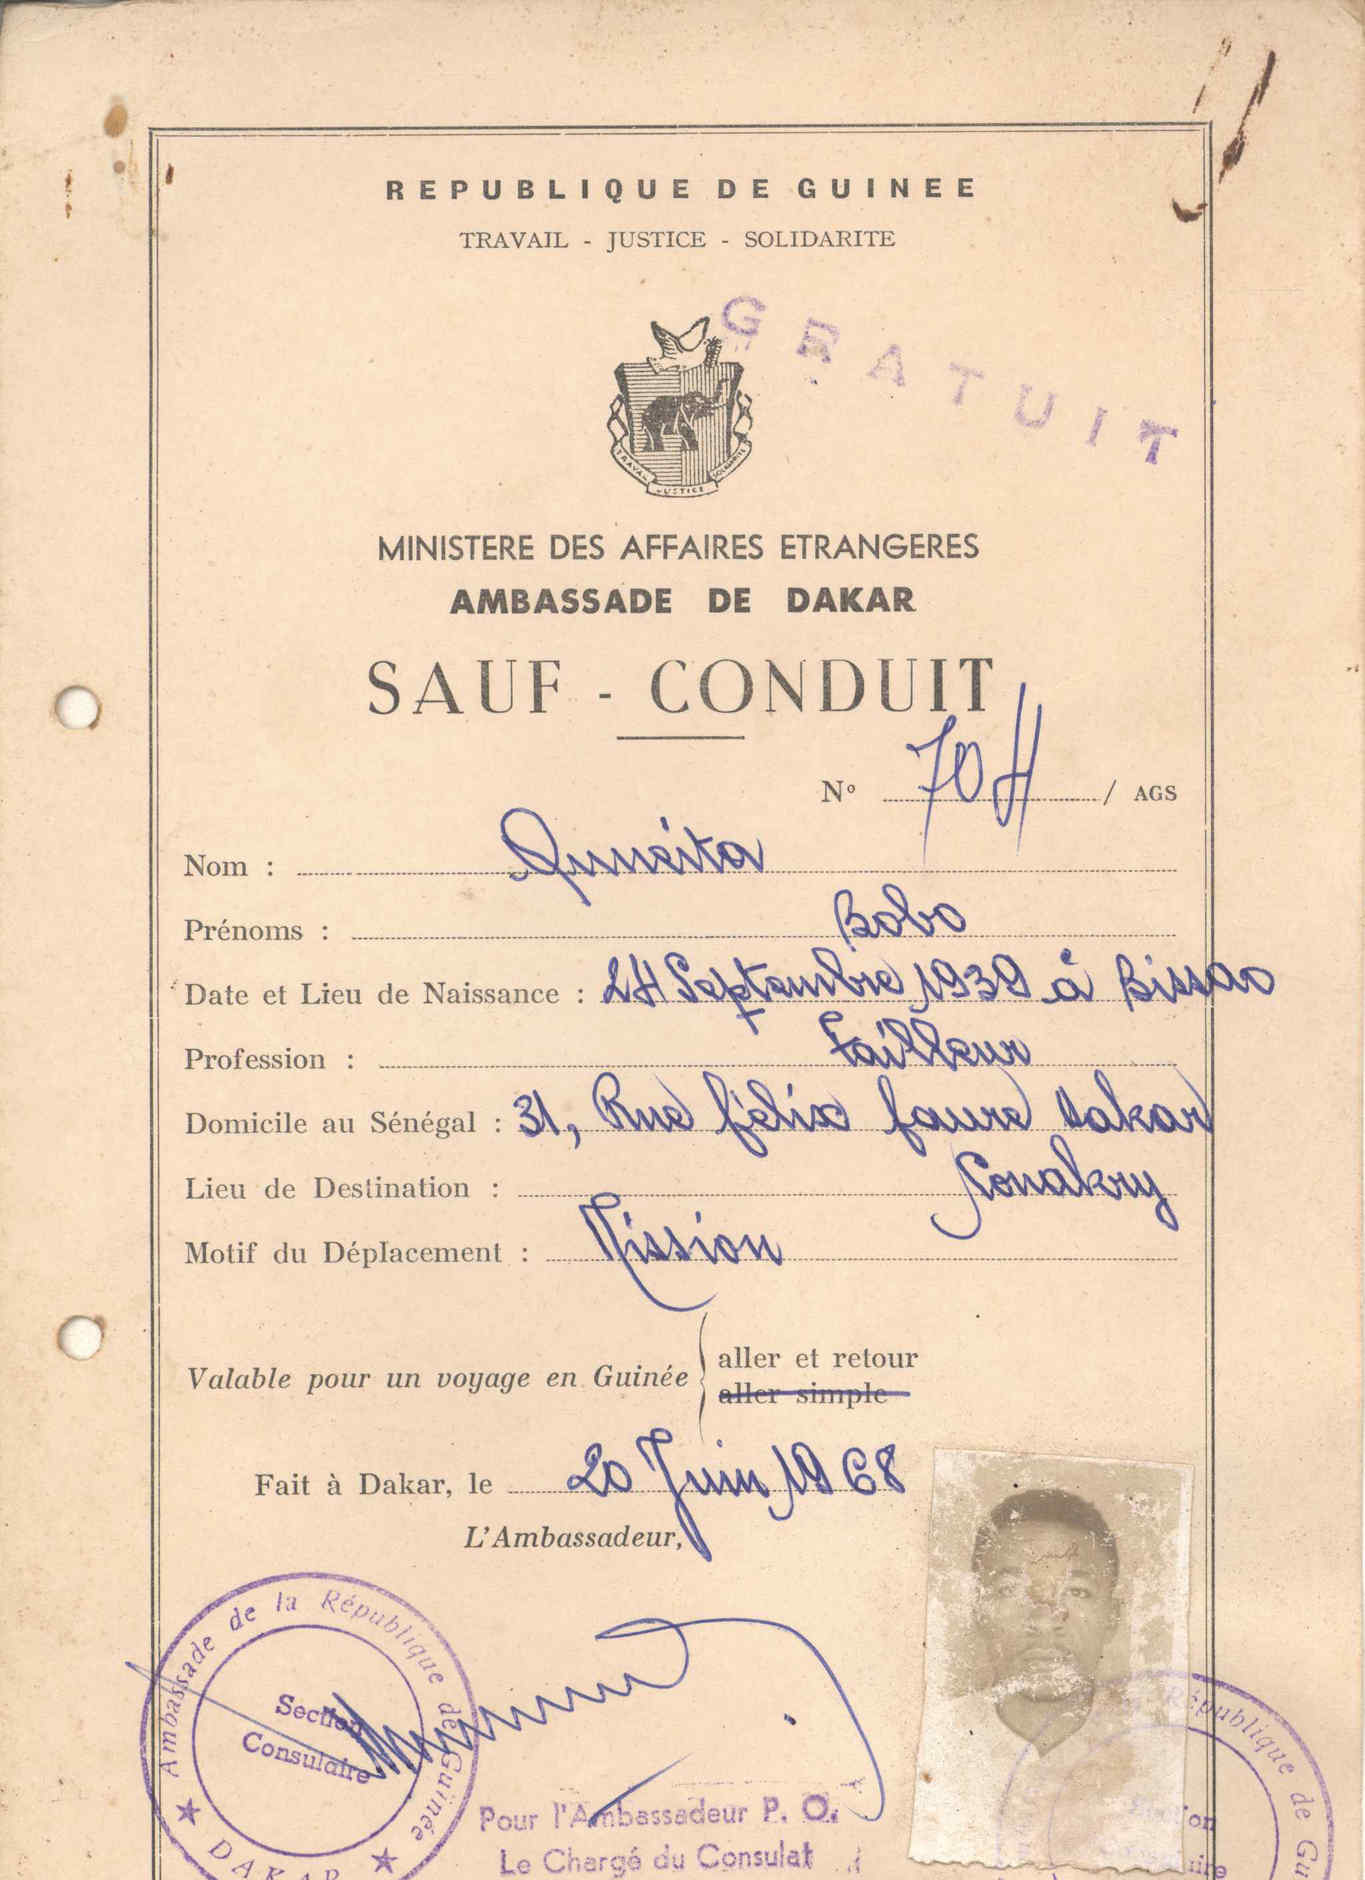 REPUBLIQUE DE GUINEE
TRAVAIL - JUSTICE - SOLIDARITE
GRATUIT
TRAVAIL JUSTICE SOLIDARITE
MINISTERE DES AFFAIRES ETRANGERES
AMBASSADE DE DAKAR
SAUF - CONDUIT
N° 704 / AGS
Nom :
Prénoms : Bobo
Date et Lieu de Naissance : 24 Septembre 1939 à Bissao
Profession : Tailleur
Domicile au Sénégal : 31, Rue félix faure Dakar
Lieu de Destination : Conakry
Motif du Déplacement : Mission
Valable pour un voyage en Guinée
aller et retour
aller simple
Fait à Dakar, le 20 Juin 1968
L'Ambassadeur,
Ambassade de la République de Guinée
Section
Consulaire
★ DAKAR ★
Pour l'Ambassadeur P. O.
Le Chargé du Consulat
République de Gu